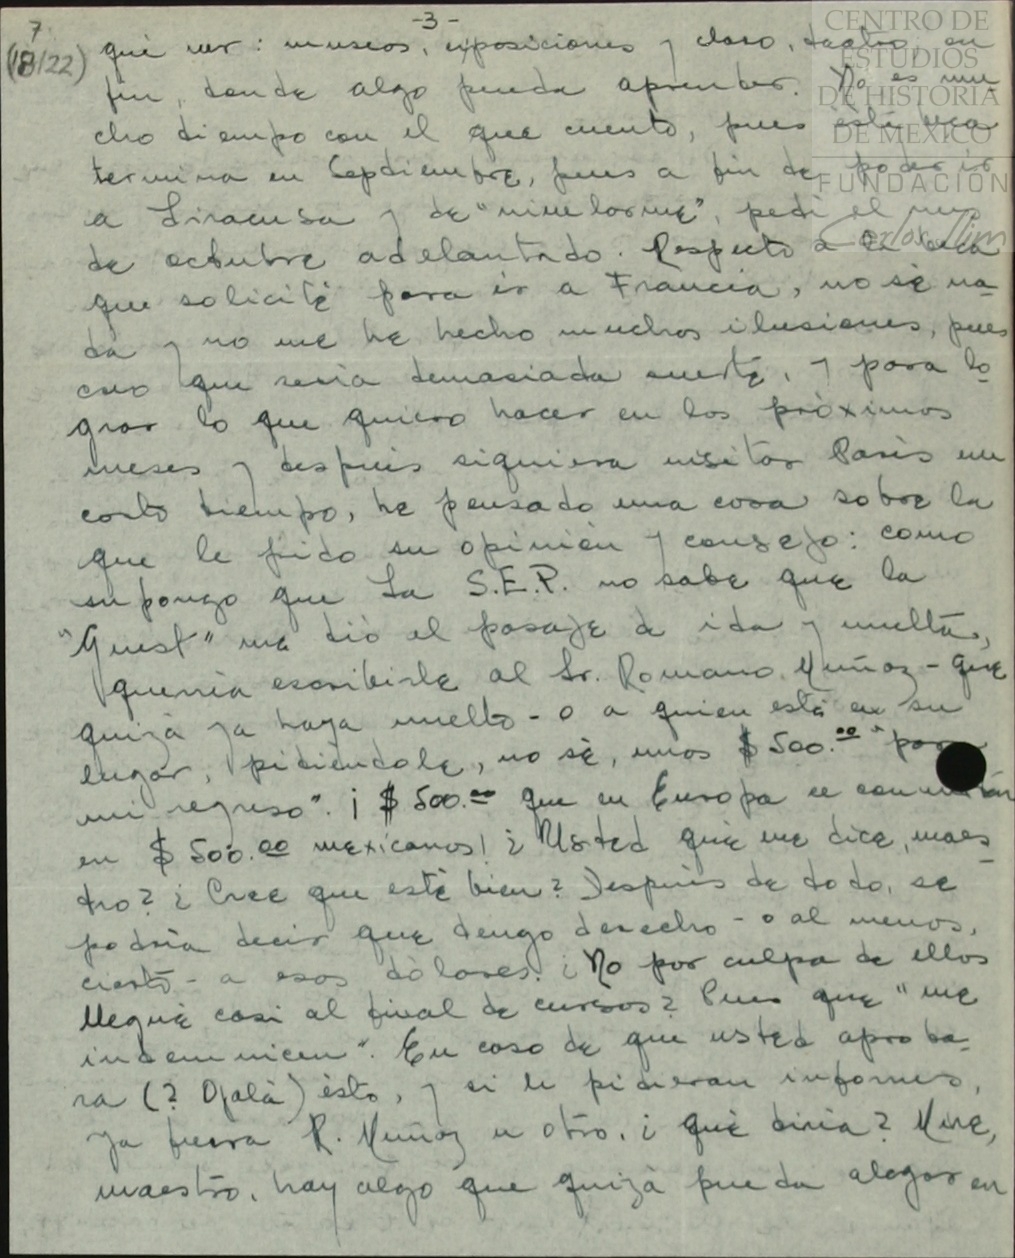 7
-3-
(18/22)
CENTRO DE
ESTUDIOS
DE HISTORIA
DE MEXICO
FUNDACIÓN
Carlos Slim
qué ver: museos, exposiciones y claro, teatro, en
fin, donde algo pueda aprender. No es mu-
cho tiempo con el que cuento, pues esta beca
termina en Septiembre, pues a fin de poder ir
a Siracusa y de "nivelarme", pedí el mes
de octubre adelantado. Respecto a la beca
que solicité para ir a Francia, no sé na-
da y no me he hecho muchas ilusiones, pues
creo que sería demasiada suerte, y para lo-
grar lo que quiero hacer en los próximos
meses y después siquiera visitar París un
corto tiempo, he pensado una cosa sobre la
que le pido su opinión y consejo: como
supongo que La S.E.P. no sabe que la
"Guest" me dió el pasaje de ida y vuelta,
querría escribirle al Sr. Romano Muñoz - que
quizá ya haya vuelto - o a quien esté en su
lugar, pidiéndole, no sé, unos $ 500.00 "para
mi regreso". ¡ $ 500.00 que en Europa se
en $ 500.00 mexicanos! ¿Usted qué me dice, maes-
tro? ¿Cree que esté bien? Después de todo, se
podría decir que tengo derecho - o al menos,
cierto - a esos dólares. ¿No por culpa de ellos
llegué casi al final de cursos? Pues que "me
indemnicen". En caso de que usted aproba-
ra (? Ojalá) ésto, y si le pidieran informes,
ya fuera R. Muñoz u otro, ¿qué diría? Mire,
maestro, hay algo que quizá pueda alegar en